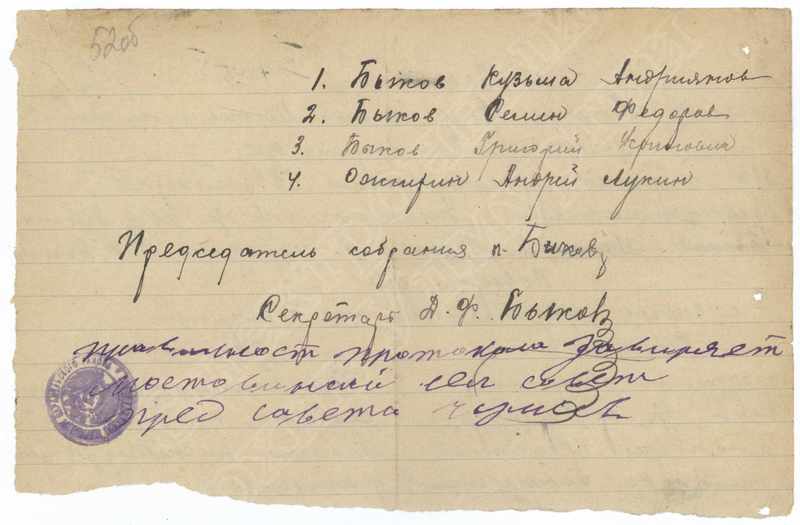 52об
1. Быков Кузьма Андриянов
2. Быков Семин Федоров
3. Быков Григорий
4. Ожигин Андрей Лукин
Председатель собрания п. Биков
Секретарь Д. Ф. Быков
правильност протокола завиряет
сел совет
пред совета